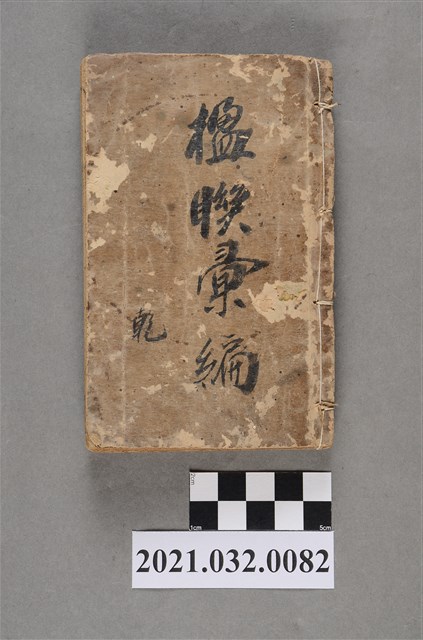 楹聯彙編
乾
2cm
1cm
5cm
2021.032.0082